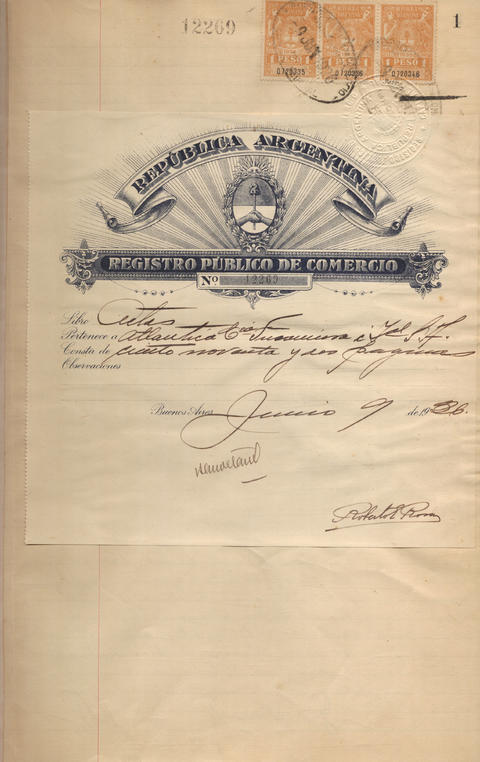 12269
1
1 PESO 1 PESO 1 PESO
0720235 0720236 0720246
REPÚBLICA ARGENTINA
REGISTRO PÚBLICO DE COMERCIO
Nº 12269
Libro Actas
Pertenece a Atlantica Cía Financiera é
Consta de ciento noventa y dos paginas
Observaciones
Buenos Aires, Junio 9 de 1936.
Roberto E. Rom